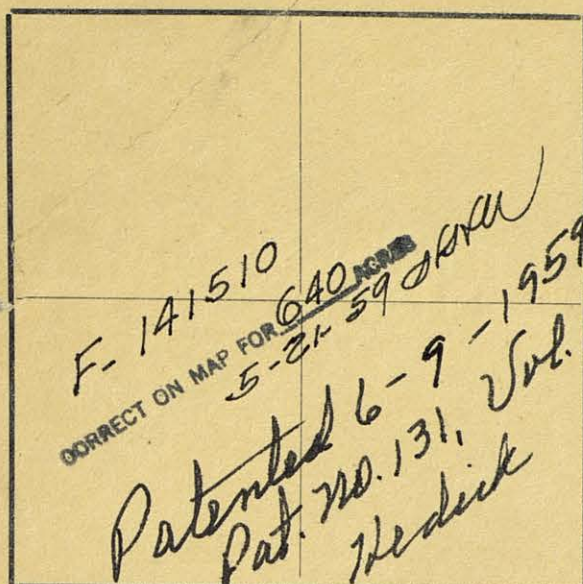 F- 141510
CORRECT ON MAP FOR 640 ACRES
5-21-59
Patented 6-9-1959
Pat. No. 131, Vol.
Hedick